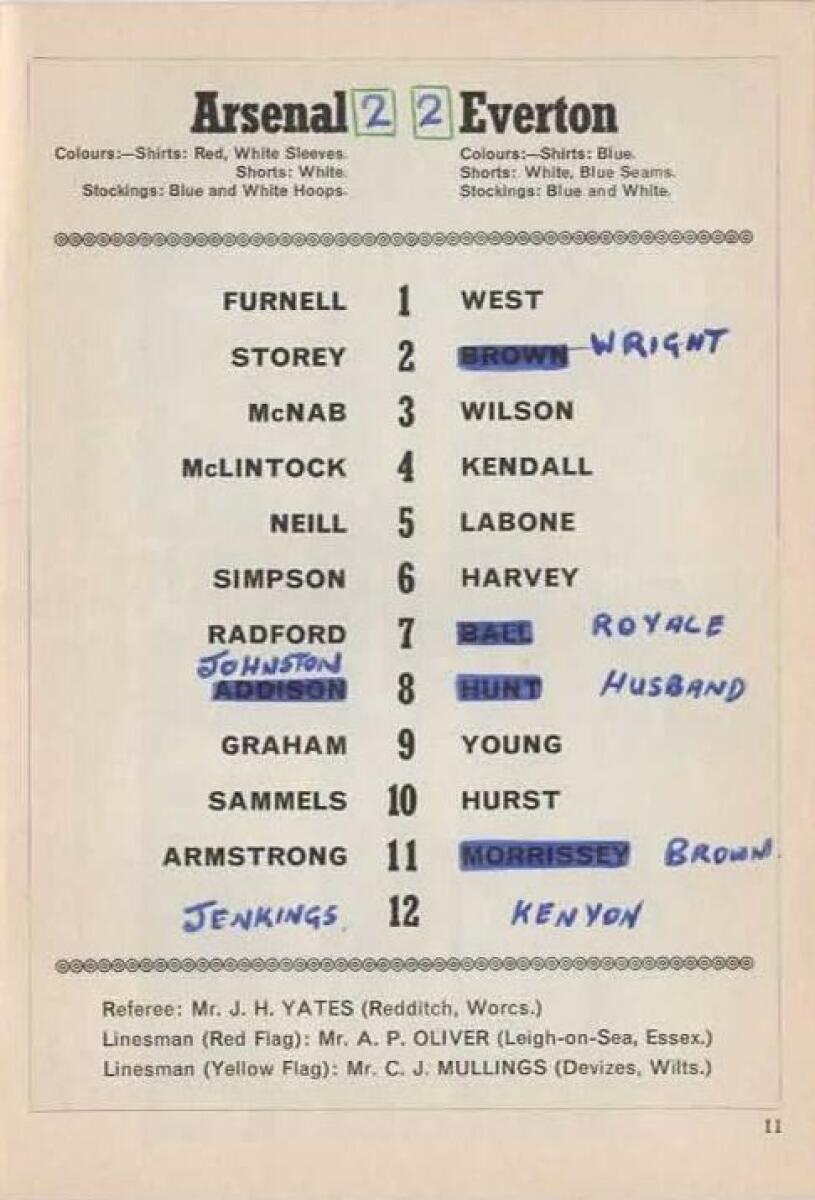 Arsenal 2 2 Everton
Colours:—Shirts: Red, White Sleeves. Colours:—Shirts: Blue.
Shorts: White. Shorts: White, Blue Seams.
Stockings: Blue and White Hoops. Stockings: Blue and White.
FURNELL 1 WEST
STOREY 2 BROWN WRIGHT
McNAB 3 WILSON
McLINTOCK 4 KENDALL
NEILL 5 LABONE
SIMPSON 6 HARVEY
RADFORD 7 BALL ROYALE
JOHNSTON
ADDISON 8 HUNT HUSBAND
GRAHAM 9 YOUNG
SAMMELS 10 HURST
ARMSTRONG 11 MORRISSEY BROWN.
JENKINGS. 12 KENYON
Referee: Mr. J. H. YATES (Redditch, Worcs.)
Linesman (Red Flag): Mr. A. P. OLIVER (Leigh-on-Sea, Essex.)
Linesman (Yellow Flag): Mr. C. J. MULLINGS (Devizes, Wilts.)
11